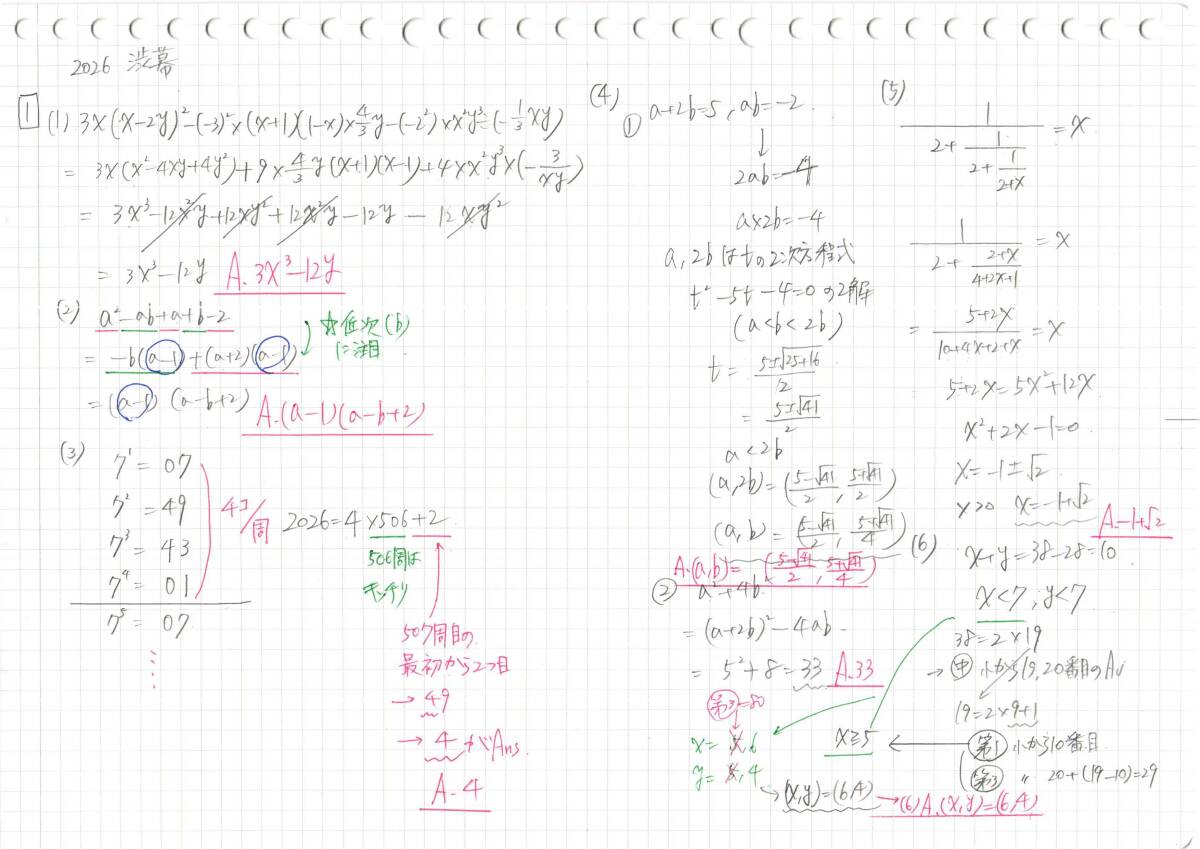 2026 渋幕
1 (1) 3x(x-2y)²-(-3)²×(x+1)(1-x)×4/3y-(-2²)×x²y³÷(-1/3xy)
= 3x(x²-4xy+4y²)+9×4/3y(x+1)(x-1)+4×x²y³×(-3/xy)
= 3x³-12x²y+12xy²+12x²y-12y-12xy²
= 3x³-12y A.3x³-12y
(2) a²-ab+a+b-2
= -b(a-1)+(a+2)(a-1)
☆低次(b)
に注目
= (a-1)(a-b+2) A.(a-1)(a-b+2)
(3) 7¹= 07
7²= 49
7³= 43
7⁴= 01
7⁵= 07
4コ/周
2026=4×506+2
506周は
キッチリ
507周目の
最初から2つ目
→49
→4がAns.
A.4
(4) ① a+2b=5, ab=-2.
↓
2ab=-4
a×2b=-4
a,2bはtの2次方程式
t²-5t-4=0の2解
(a<b<2b)
t= 5±√25+16/2
= 5±√41/2
a<2b
(a,2b)=(5-√41/2, 5+√41/2)
(a,b)=(5-√41/2, 5+√41/4)
A.(a,b)=(5-√41/2, 5+√41/4)
② a²+4b²
=(a+2b)²-4ab
= 5²+8=33 A.33
(5) 1/(2+1/(2+1/(2+x)))=x
1/(2+(2+x)/(4+2x+1))=x
= 5+2x/10+4x+2+x=x
5+2x=5x²+12x
x²+2x-1=0
x=-1±√2
x>0 x=-1+√2
A.-1+√2
(6) x+y=38-28=10
x<7, y<7
38=2×19
→中 小から19,20番目のAv
19=2×9+1
第1 小から10番目
第3 〃 20+(19-10)=29
x≧5
第3=80
x=5,6
y=5,4
→(x,y)=(6,4) →(6)A.(x,y)=(6,4)